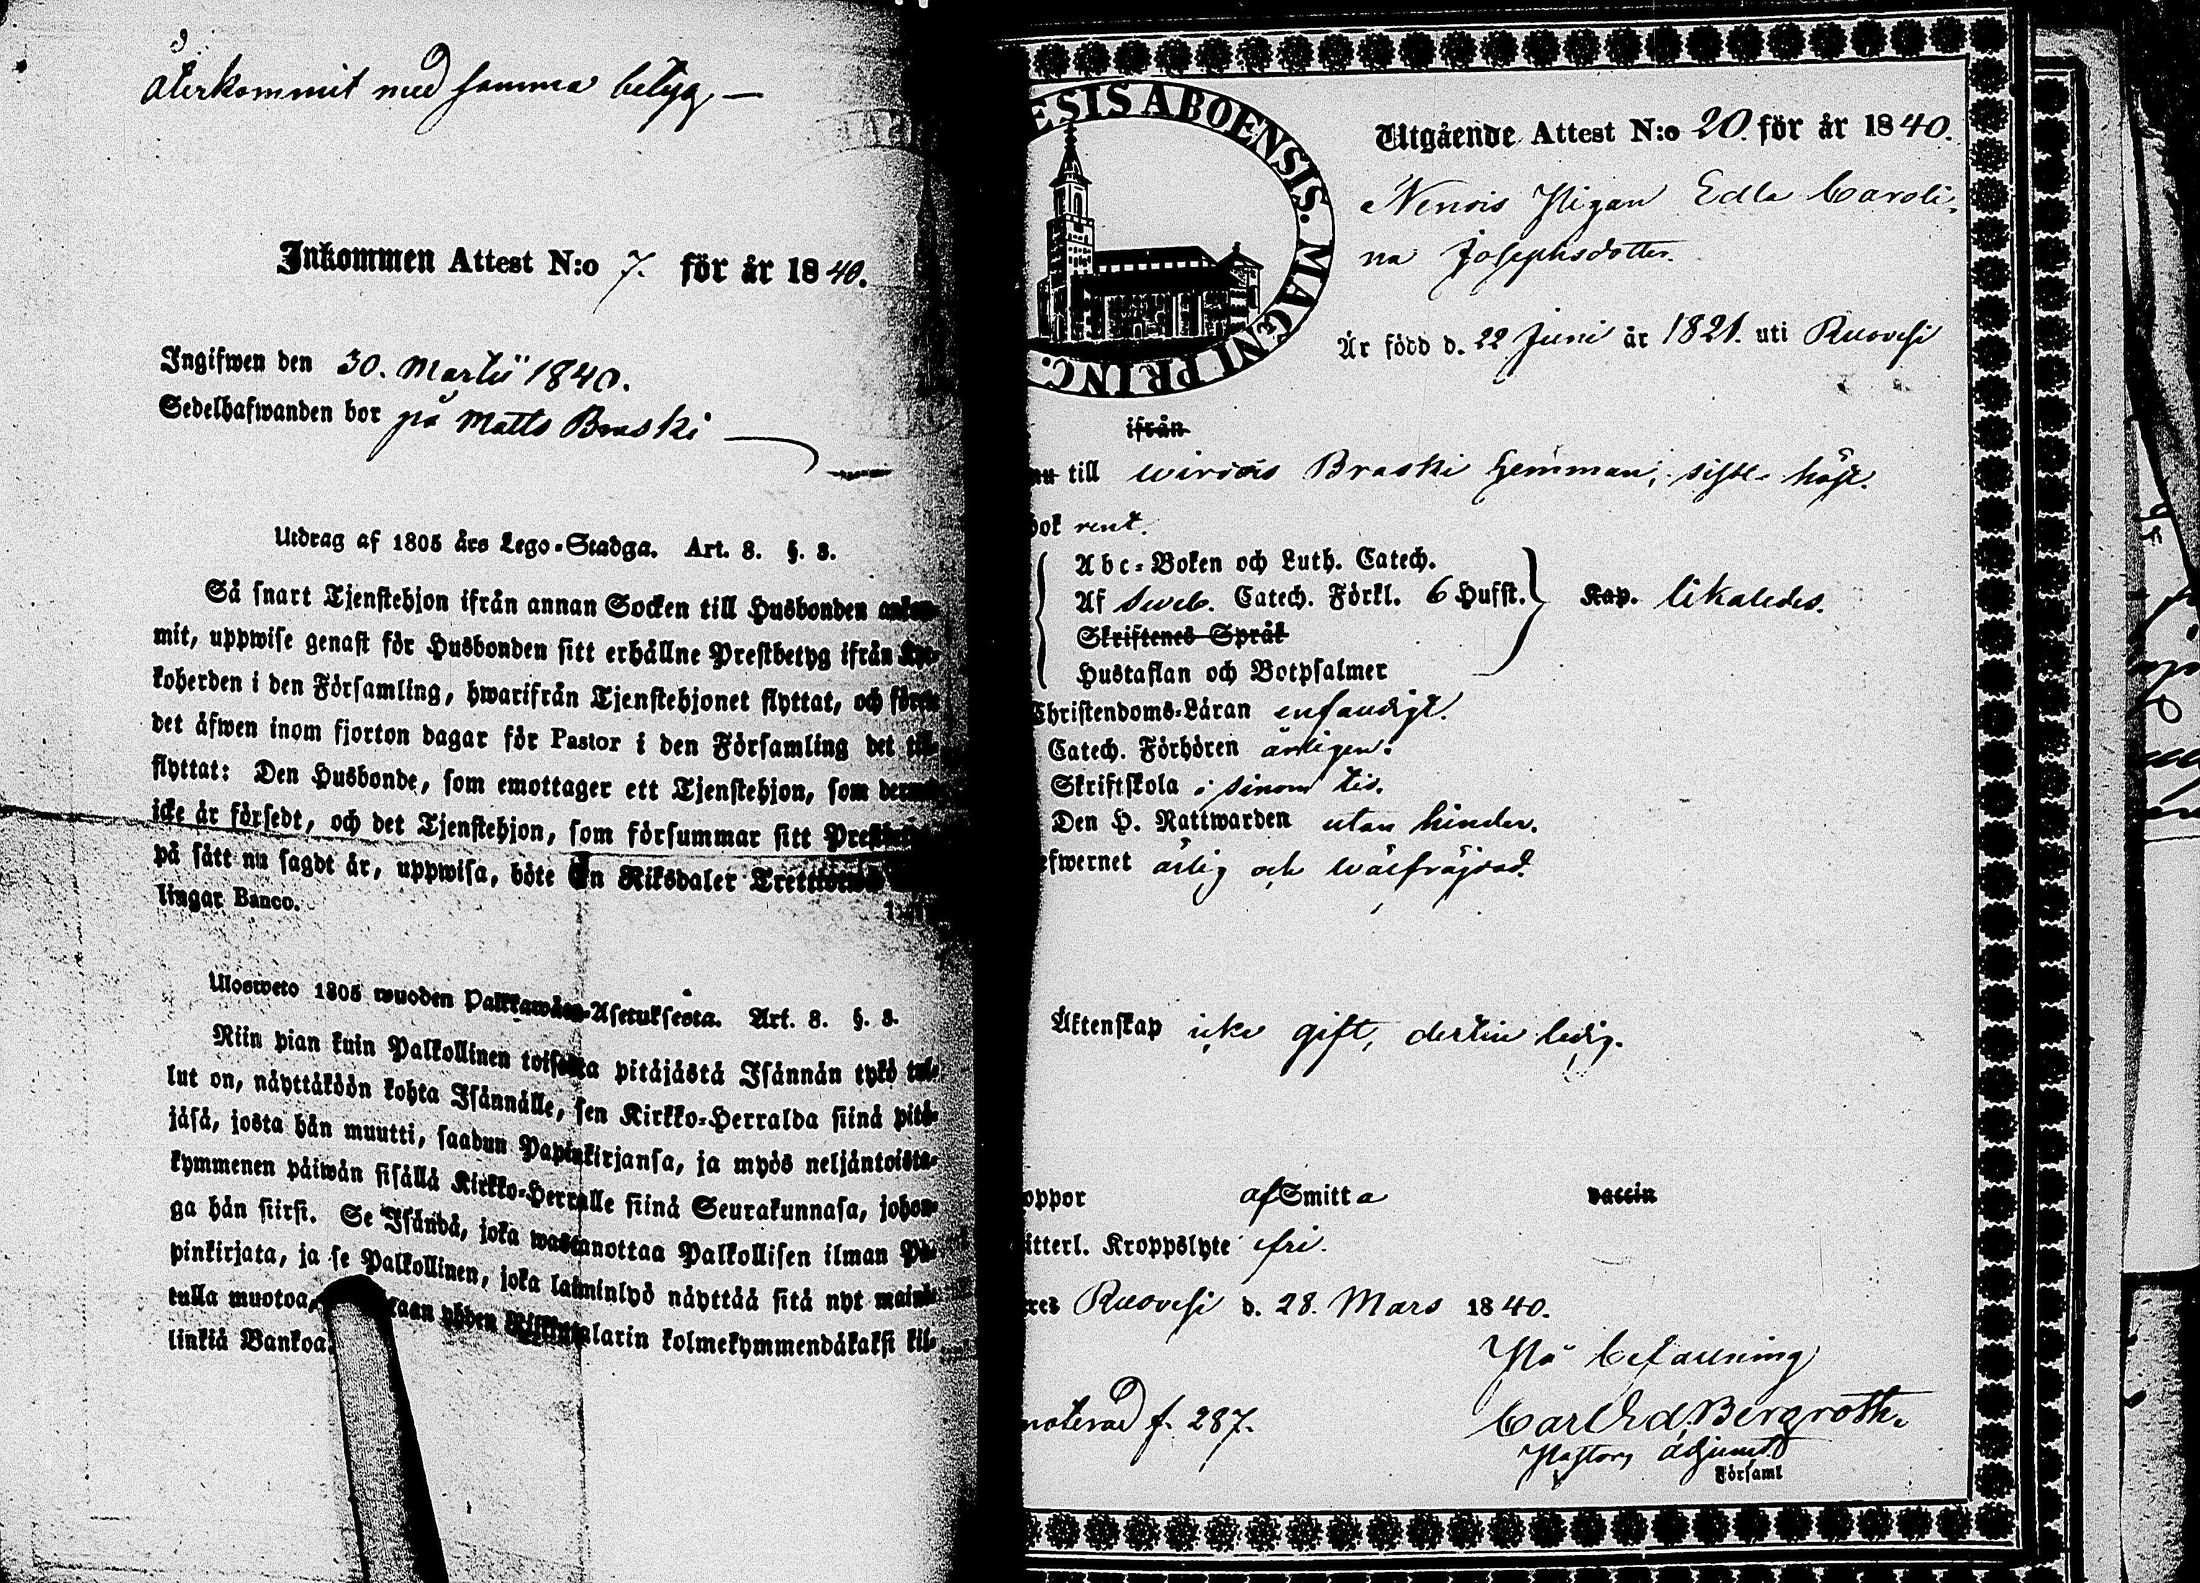 återkommit med samma betyg —
Inkommen Attest N:o 7. för år 1840.
Ingifwen den 30. Martii 1840.
Sedelhafwanden bor på Matts Braski
Utdrag af 1805 års Lego-Stadga. Art. 8. §. 3.
Så snart Tjenstehjon ifrån annan Socken till Husbonden ankom-
mit, uppwise genast för Husbonden sitt erhållne Prestbetyg ifrån Kyr-
koherden i den Församling, hwarifrån Tjenstehjonet flyttat, och förete
det äfwen inom fjorton dagar för Pastor i den Församling det till-
flyttat: Den Husbonde, som emottager ett Tjenstehjon, som dermed
icke är försedt, och det Tjenstehjon, som försummar sitt
på sätt nu sagdt är, uppwisa, böte En Riksdaler
lingar Banco.
Ulosweto 1805 wuoden Palkkawäen-Asetuksesta. Art. 8. §. 3.
Niin pian kuin Palkollinen toisesta pitäjästä Isännän tykö tul-
lut on, näyttäköön kohta Isännälle, sen Kirkko-Herralda siinä pitä-
jäsä, josta hän muutti, saadun Papinkirjansa, ja myös neljäntoista-
kymmenen päiwän sisällä Kirkko-Herralle siinä Seurakunnasa, johon-
ga hän siirsi. Se Isändä, joka wastanottaa Palkollisen ilman Pa-
pinkirjata, ja se Palkollinen, joka laiminlyö näyttää sitä nyt maini-
tulla muotoa, yhden Riksdalarin kolmekymmendäkaksi kil-
linkiä Bankoa.
ESIS ABOENSIS. MAGNI PRINC.
Utgående Attest N:o 20. för år 1840.
Pigan Edla Caroli-
na Josephsdotter.
Är född d. 22 Juni år 1821. uti Ruovesi
ifrån
nu till Wirdois Braski hemman, sistl. höst.
bok rent.
Abc-Boken och Luth. Catech.
Af Sweb. Catech. Förkl. 6 Hufst. Kap. likaledes.
Skriftenes Språk
Hustaflan och Botpsalmer
Christendoms-Läran enfaldigt.
Catech. Förhören årligen.
Skriftskola i sinom tid.
Den H. Nattwarden utan hinder.
efwernet ärlig och wälfräjdad.
Äktenskap icke gift, dertill ledig.
oppor af Smitta vaccin
itterl. Kroppslyte fri.
res Ruovesi d. 28. Mars 1840.
På befallning
noterad f. 287.
Carl Ed. Bergroth.
Pastors adjunct
Församl